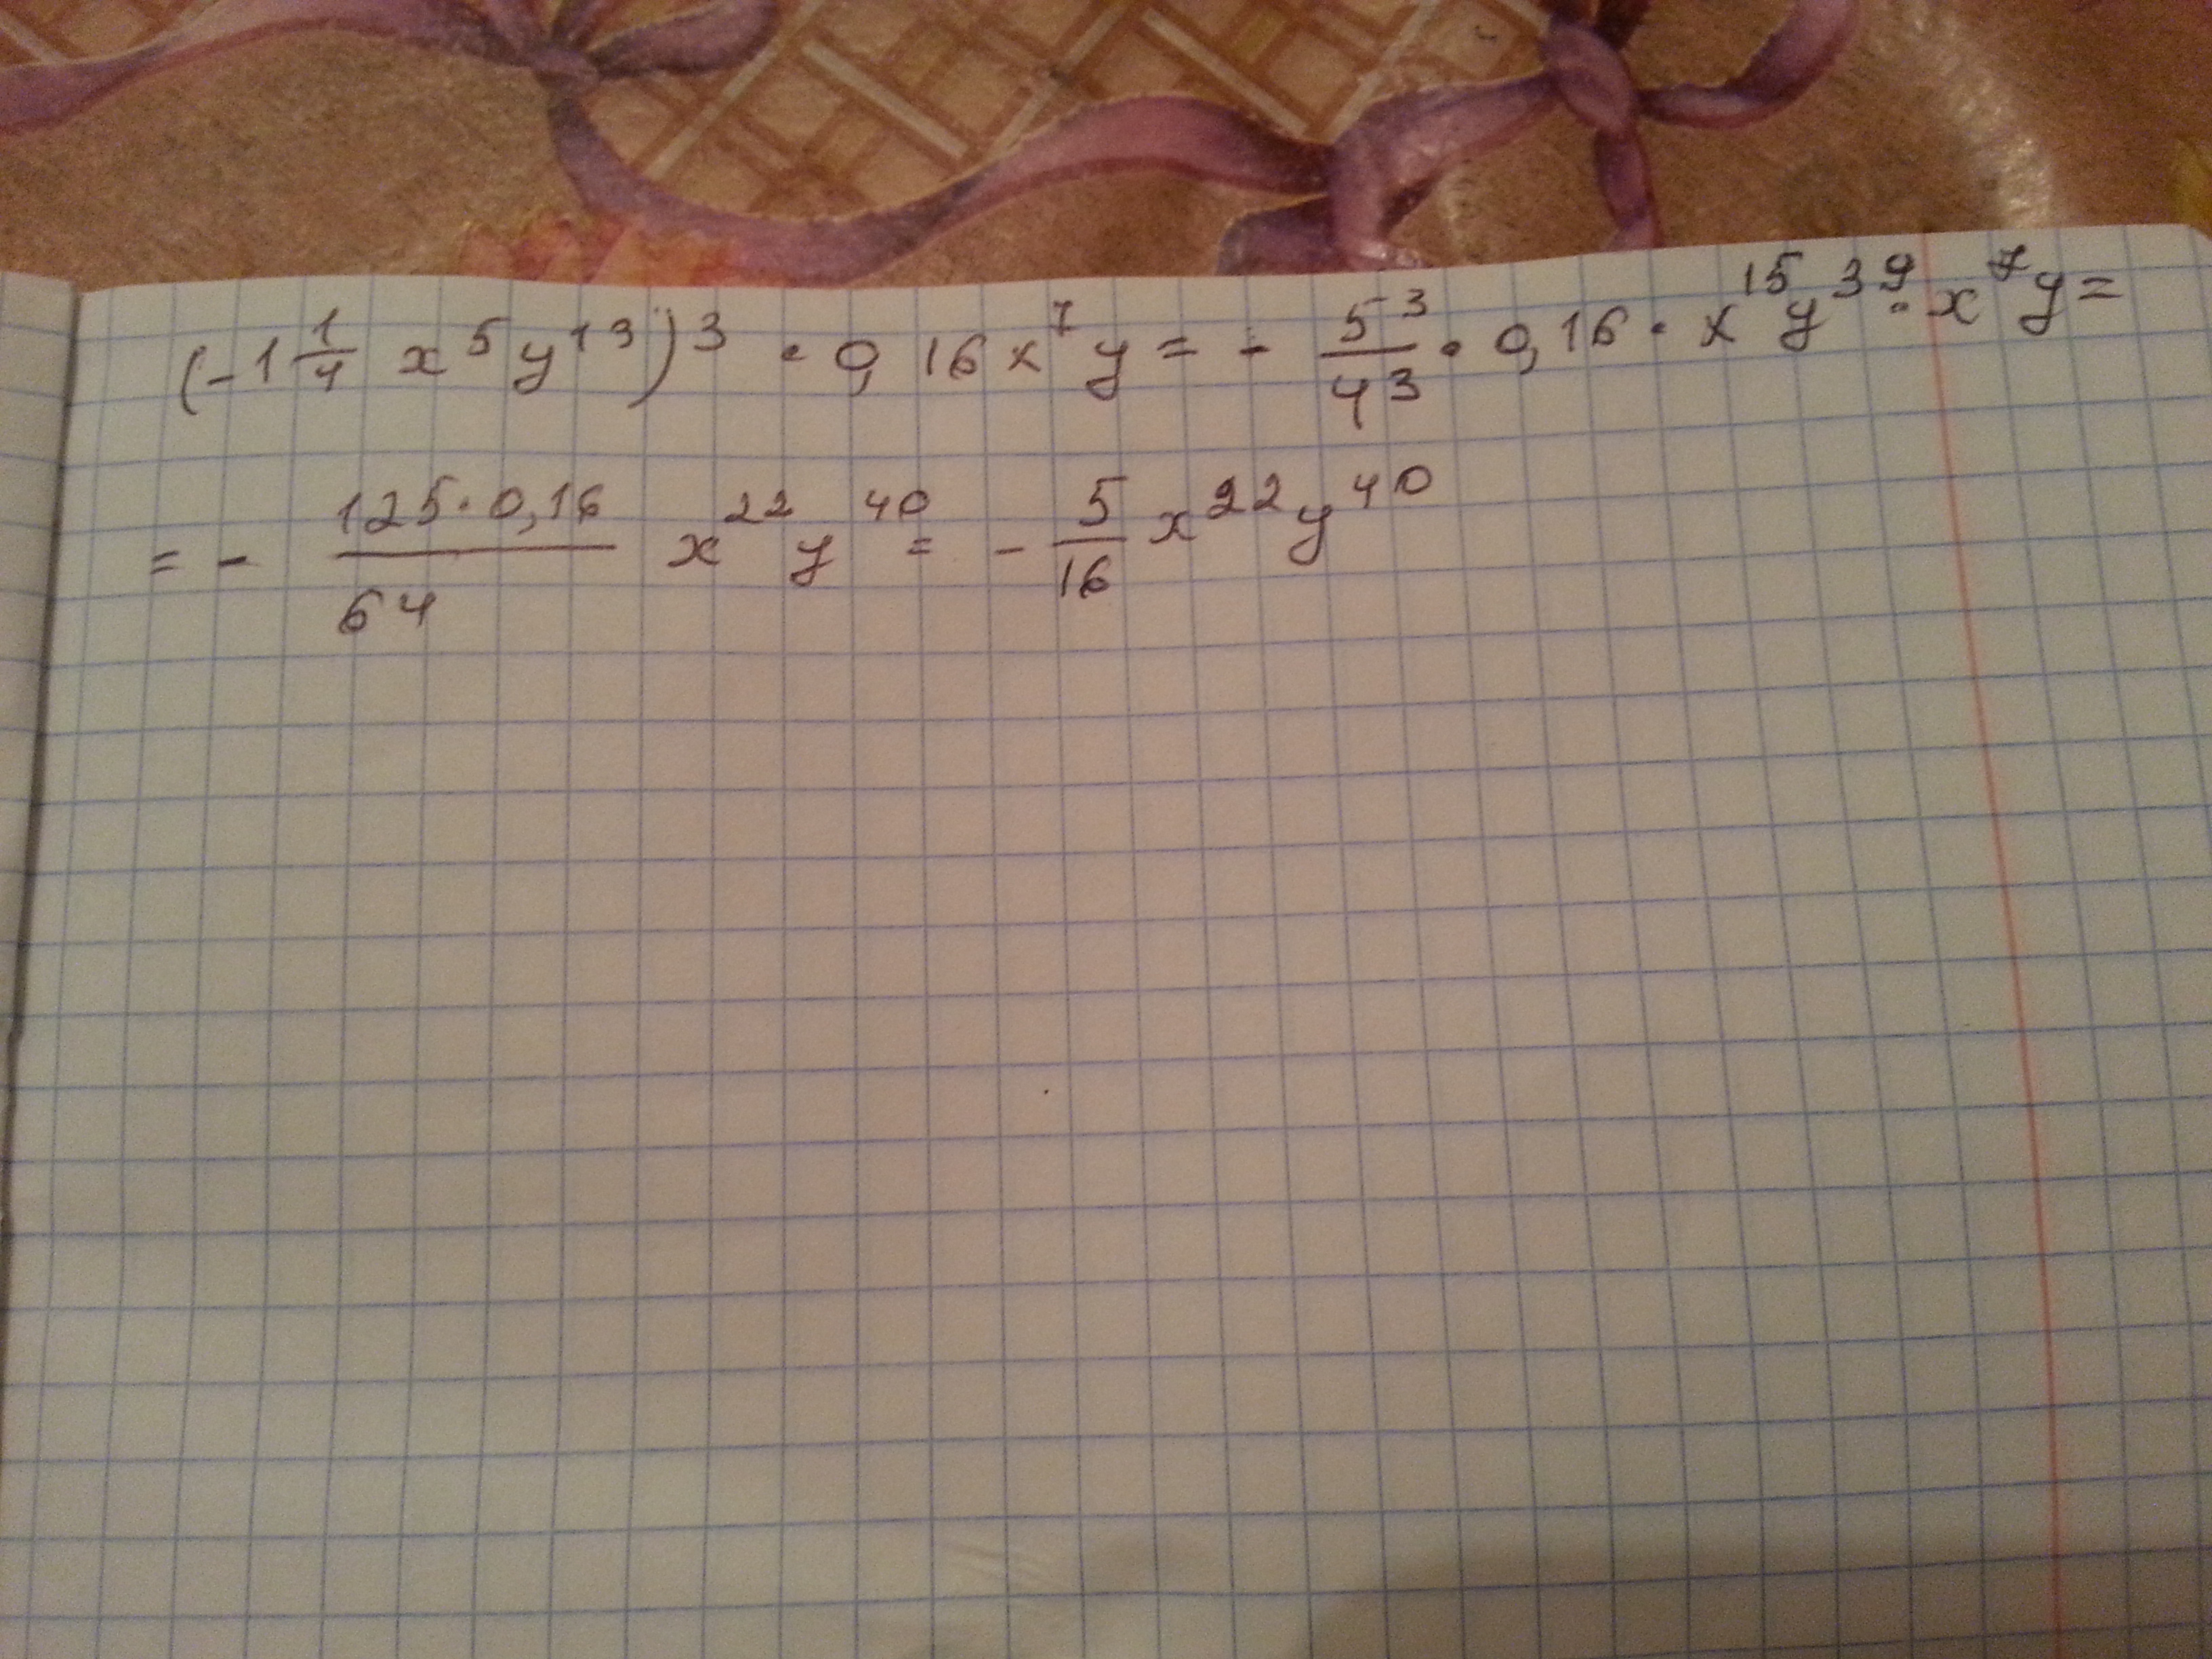 (-1 1/4 x⁵y¹³)³ · 0,16x⁷y = - 5³/4³ · 0,16 · x¹⁵y³⁹ · x⁷y =
= - 125·0,16/64 x²²y⁴⁰ = - 5/16 x²²y⁴⁰